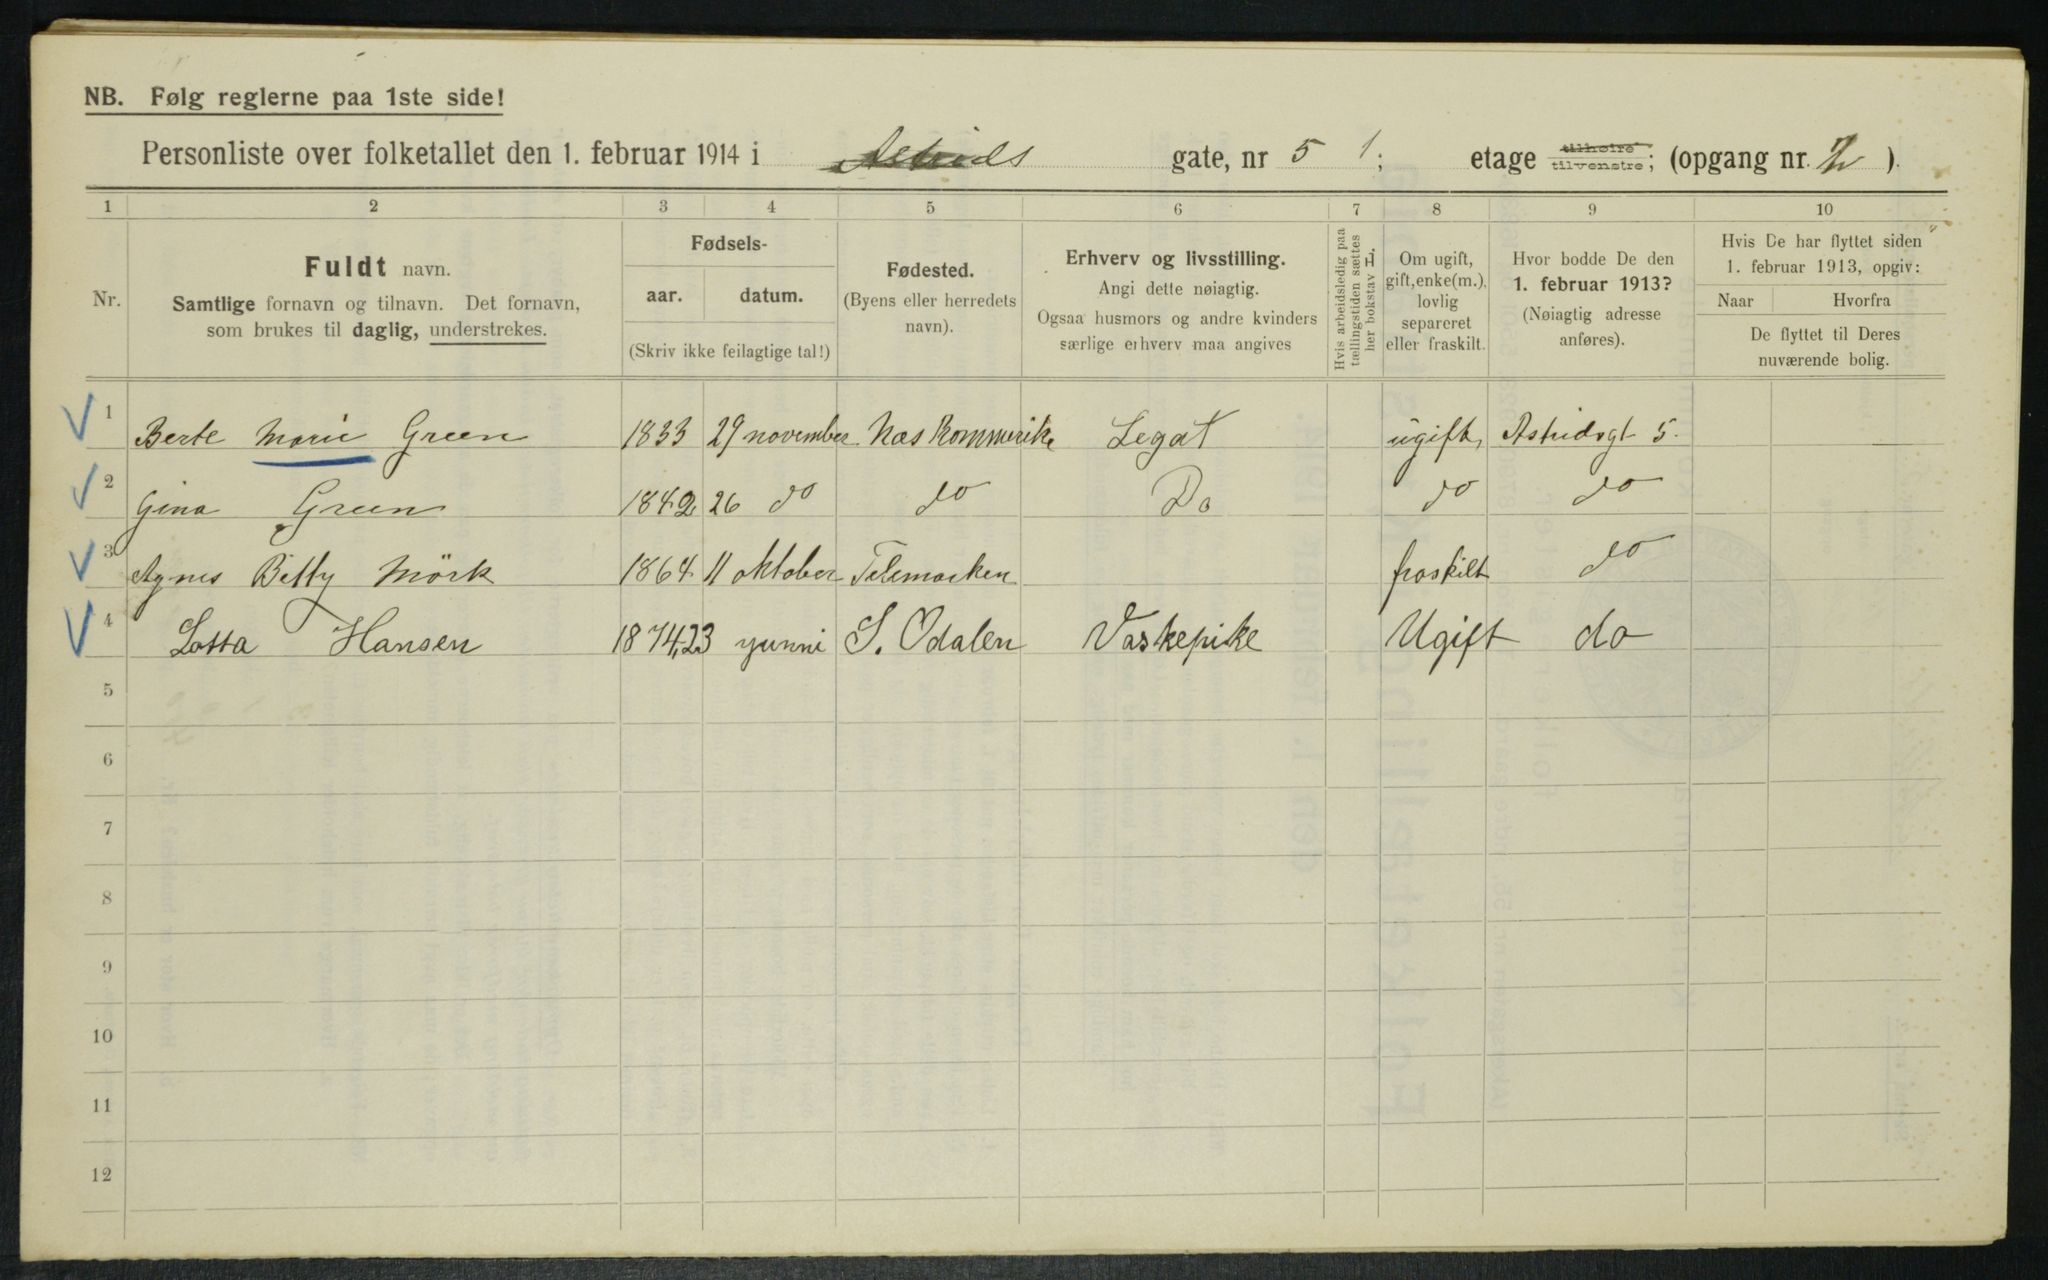 NB. Følg reglerne paa 1ste side!
Personliste over folketallet den 1. februar 1914 i Astrids gate, nr 5 1; etage tilhøire tilvenstre; (opgang nr. 2).
1 2 3 4 5 6 7 8 9 10
Nr.
Fuldt navn.
Samtlige fornavn og tilnavn. Det fornavn,
som brukes til daglig, understrekes.
Fødsels-
aar. datum.
(Skriv ikke feilagtige tal!)
Fødested.
(Byens eller herredets
navn).
Erhverv og livsstilling.
Angi dette nøiagtig.
Ogsaa husmors og andre kvinders
særlige erhverv maa angives
Hvis arbeidsledig paa
tællingstiden sættes
her bokstav L.
Om ugift,
gift, enke(m.),
lovlig
separeret
eller fraskilt.
Hvor bodde De den
1. februar 1913?
(Nøiagtig adresse
anføres).
Hvis De har flyttet siden
1. februar 1913, opgiv:
Naar Hvorfra
De flyttet til Deres
nuværende bolig.
1 Berte Marie Green 1833 29 november Næs Rommerike Legat ugift Astridsgt 5.
2 Gina Green 1842 26 do do Do do do
3 Agnes Betty Mörk 1864 11 oktober Telemarken fraskilt do
4 Lotta Hansen 1874, 23 yunni S. Odalen Vaskepike Ugift do
5
6
7
8
9
10
11
12